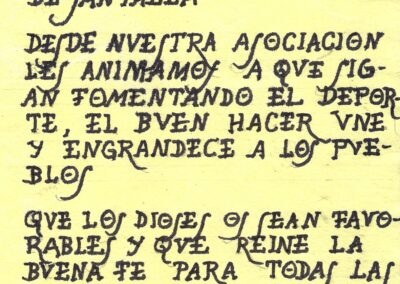 DE SANTAELLA
DESDE NVESTRA ASOCIACION
LES ANIMAMOS A QVE SIG-
AN FOMENTANDO EL DEPOR-
TE, EL BVEN HACER VNE
Y ENGRANDECE A LOS PVE-
BLOS
QVE LOS DIOSES OS SEAN FAVO-
RABLES Y QVE REINE LA
BVENA FE PARA TODAS LAS